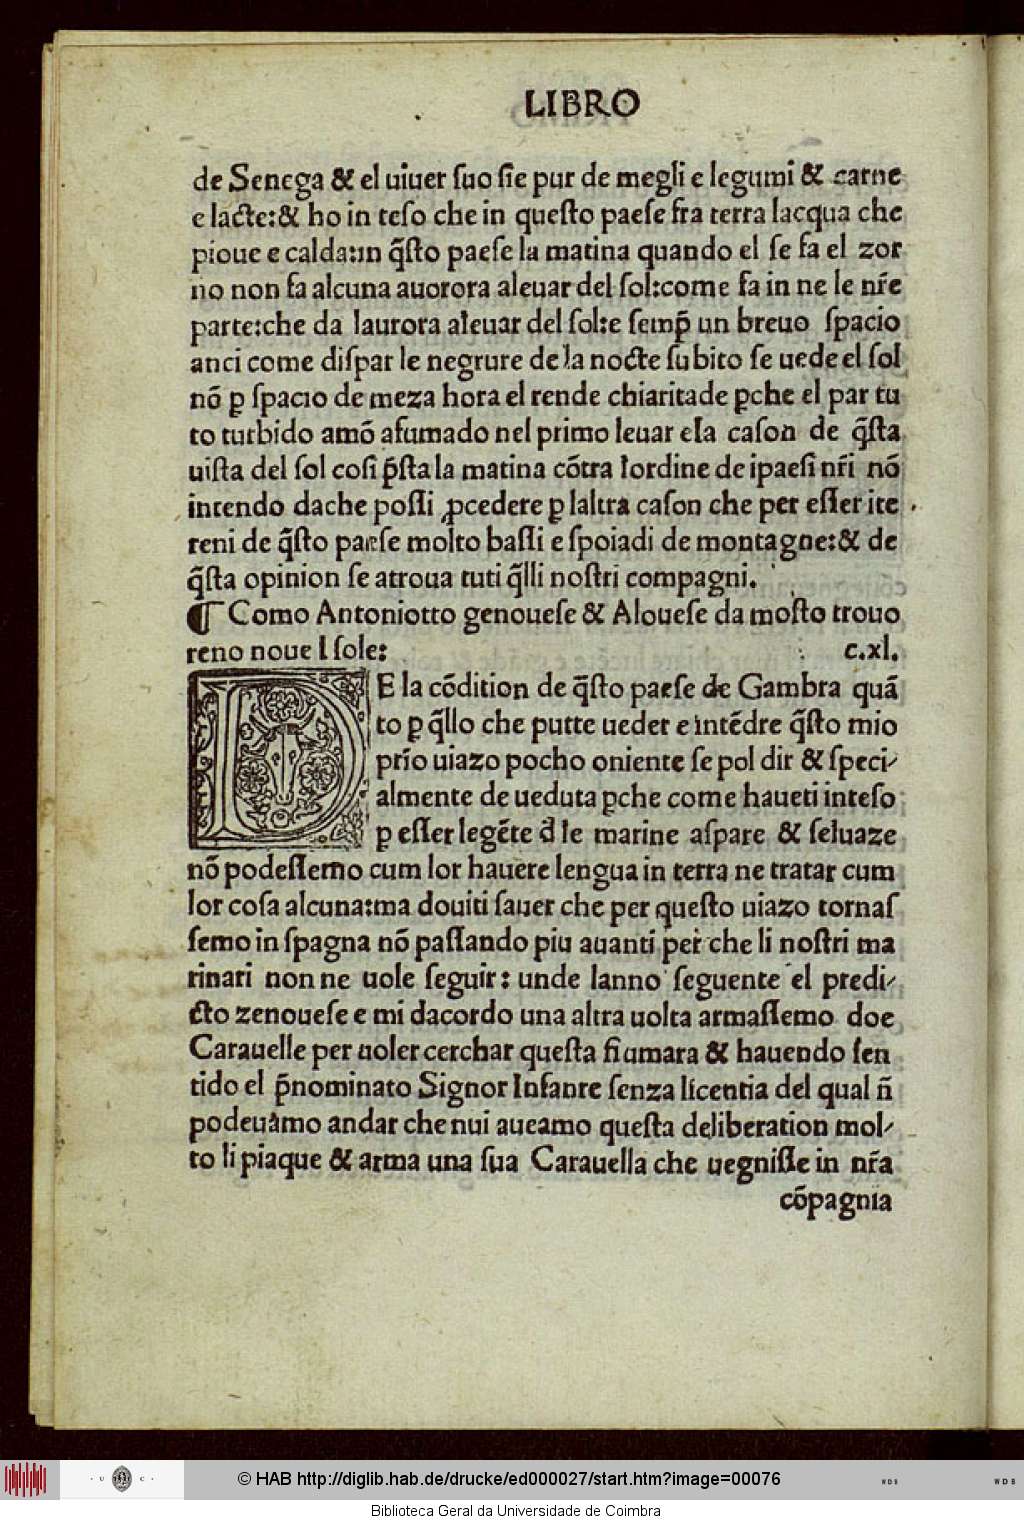 LIBRO
de Senega & el uiuer ſuo ſie pur de megli e legumi & carne
e lacte:& ho in teſo che in queſto paeſe fra terra lacqua che
pioue e calda:in q̃ſto paeſe la matina quando el ſe fa el zor
no non fa alcuna auorora aleuar del ſol:come fa in ne le nr̃e
parte:che da laurora aleuar del ſol:e ſemp̃ un breuo ſpacio
anci come diſpar le negrure de la nocte ſubito ſe uede el ſol
nõ ꝑ ſpacio de meza hora el rende chiaritade ꝑche el par tu
to turbido amõ afumado nel primo leuar e la caſon de q̃ſta
uiſta del ſol coſi p̃ſta la matina cõtra lordine de ipaeſi nr̃i nõ
intendo dache poſſi ꝓcedere ꝑ laltra caſon che per eſſer ite
reni de q̃ſto paeſe molto baſſi e ſpoiadi de montagne:& de
q̃ſta opinion ſe atroua tuti q̃lli noſtri compagni.
¶ Como Antoniotto genoueſe & Aloueſe da moſto trouo
reno noue Iſole: c.xl.
DE la cõdition de q̃ſto paeſe de Gambra quã
to ꝑ q̃llo che putte ueder e intẽdre q̃ſto mio
prĩo uiazo pocho oniente ſe pol dir & ſpeci⸗
almente de ueduta ꝑche come haueti inteſo
ꝑ eſſer legẽte d̃ le marine aſpare & ſeluaze
nõ podeſſemo cum lor hauere lengua in terra ne tratar cum
lor coſa alcuna:ma douiti ſauer che per queſto uiazo tornaſ
ſemo in ſpagna nõ paſſando piu auanti per che li noſtri ma
rinari non ne uole ſeguir: unde lanno ſeguente el predi⸗
cto zenoueſe e mi dacordo una altra uolta armaſſemo doe
Carauelle per uoler cerchar queſta fiumara & hauendo ſen
tido el p̃nominato Signor Infante ſenza licentia del qual ñ
podeuamo andar che nui aueamo queſta deliberation mol⸗
to li piaque & arma una ſua Carauella che uegniſſe in nr̃a
cõpagnia
© HAB http://diglib.hab.de/drucke/ed000027/start.htm?image=00076
Biblioteca Geral da Universidade de Coimbra